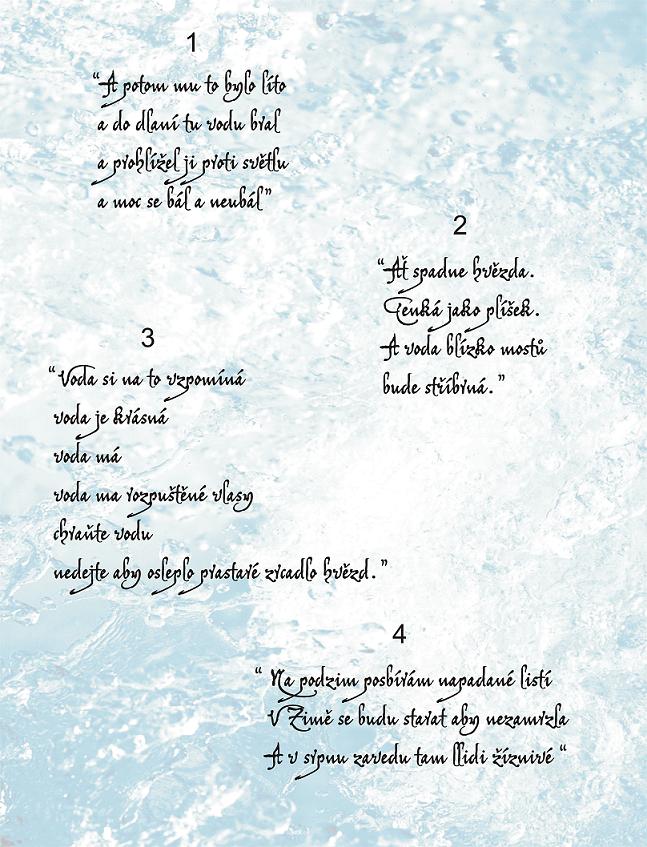 1
“A potom mu to bylo líto
a do dlaní tu vodu bral
a prohlížel ji proti světlu
a moc se bál a neubál”
2
“Ať spadne hvězda.
Tenká jako plíšek.
A voda blízko mostů
bude stříbrná.”
3
“Voda si na to vzpomíná
voda je krásná
voda má
voda ma rozpuštěné vlasy
chraňte vodu
nedejte aby osleplo prastaré zrcadlo hvězd.”
4
“ Na podzim posbírám napadané listí
V Zimě se budu starat aby nezamrzla
A v srpnu zavedu tam llidi žíznivé “